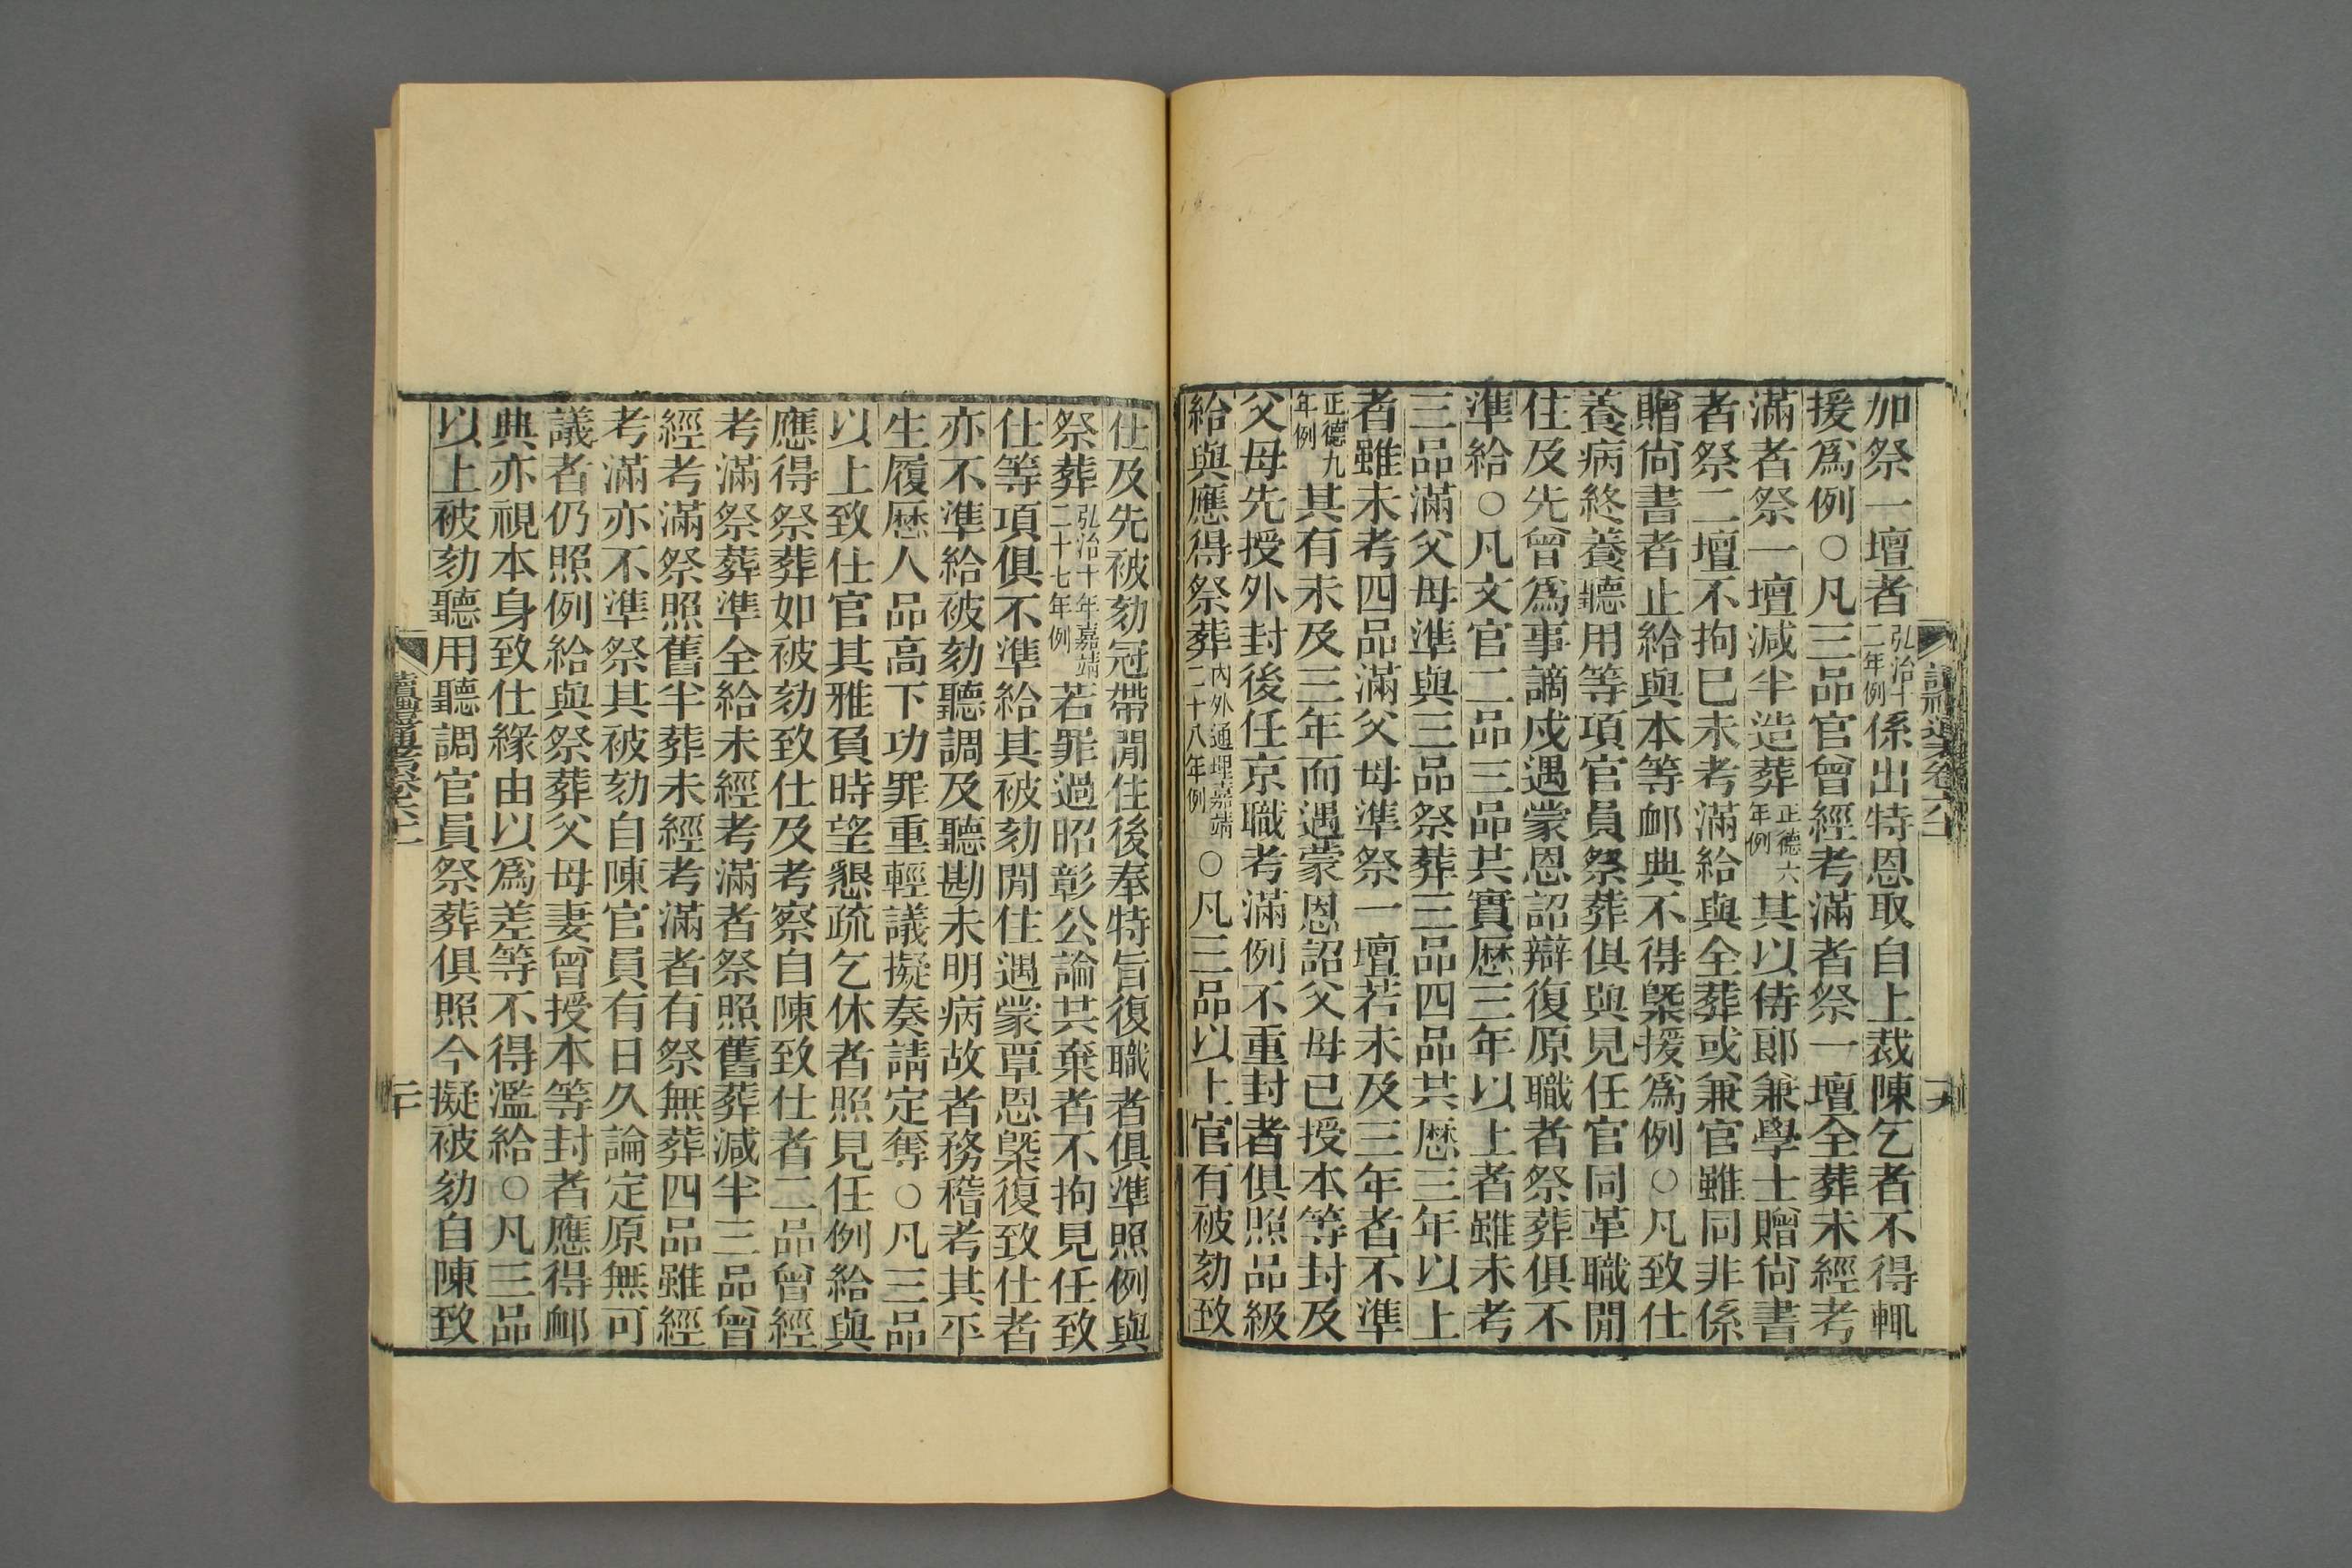 加祭一壇者弘治十二年例係出特恩取自上裁陳乞者不得輒
援爲例○凡三品官曾經考滿者祭一壇全葬未經考
滿者祭一壇減半造葬正德六年例其以侍郎兼學士贈尙書
者祭二壇不拘已未考滿給與全葬或兼官雖同非係
贈尙書者止給與本等䘏典不得槩援爲例○凡致仕
養病終養聽用等項官員祭葬俱與見任官同革職閒
住及先曾爲事謫戍遇蒙恩詔辯復原職者祭葬俱不
準給○凡文官二品三品其實歷三年以上者雖未考
三品滿父母準與三品祭葬三品四品共歷三年以上
者雖未考四品滿父母準祭一壇若未及三年者不準
正德九年例其有未及三年而遇蒙恩詔父母已授本等封及
父母先授外封後任京職考滿例不重封者俱照品級
給與應得祭葬內外通理嘉靖二十八年例○凡三品以上官有被劾致
仕及先被劾冠帶閒住後奉特旨復職者俱準照例與
祭葬弘治十年嘉靖二十七年例若罪過昭彰公論共棄者不拘見任致
仕等項俱不準給其被劾閒住遇蒙覃恩槩復致仕者
亦不準給被劾聽調及聽勘未明病故者務稽考其平
生履歷人品高下功罪重輕議擬奏請定奪○凡三品
以上致仕官其雅負時望懇疏乞休者照見任例給與
應得祭葬如被劾致仕及考察自陳致仕者二品曾經
考滿祭葬準全給未經考滿者祭照舊葬減半三品曾
經考滿祭照舊半葬未經考滿者有祭無葬四品雖經
考滿亦不準祭其被劾自陳官員有日久論定原無可
議者仍照例給與祭葬父母妻曾授本等封者應得䘏
典亦視本身致仕緣由以爲差等不得濫給○凡三品
以上被劾聽用聽調官員祭葬俱照今擬被劾自陳致
讀禮通考卷六十一
二十